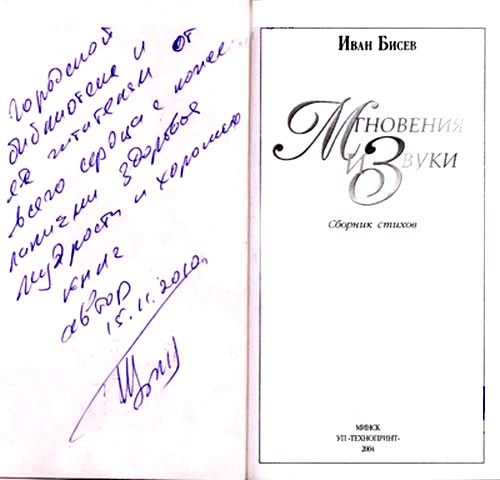 Городской
библиотеке и
её читателям от
всего сердца с
здоровья
мудрости и хороших
книг
автор
15.11.2010.
Иван Бисев
Мгновения
и Звуки
Сборник стихов
МИНСК
УП «ТЕХНОПРИНТ»
2004